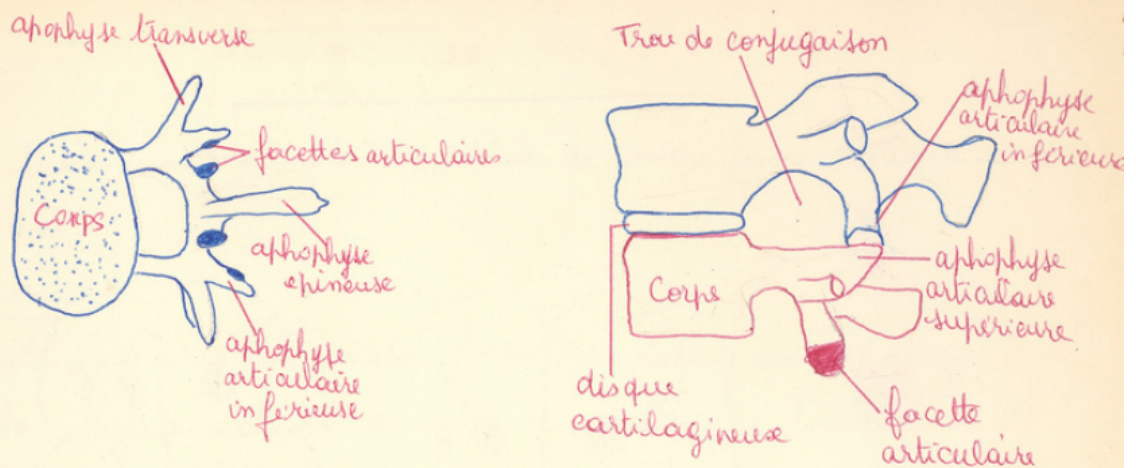 apophyse transverse
facettes articulaires
Corps
aphophyse
epineuse
aphophyse
articulaire
inférieuse
Trou de conjugaison
aphophyse
articulaire
inférieuse
Corps
aphophyse
articulaire
supérieure
disque
cartilagineuse
facette
articulaire